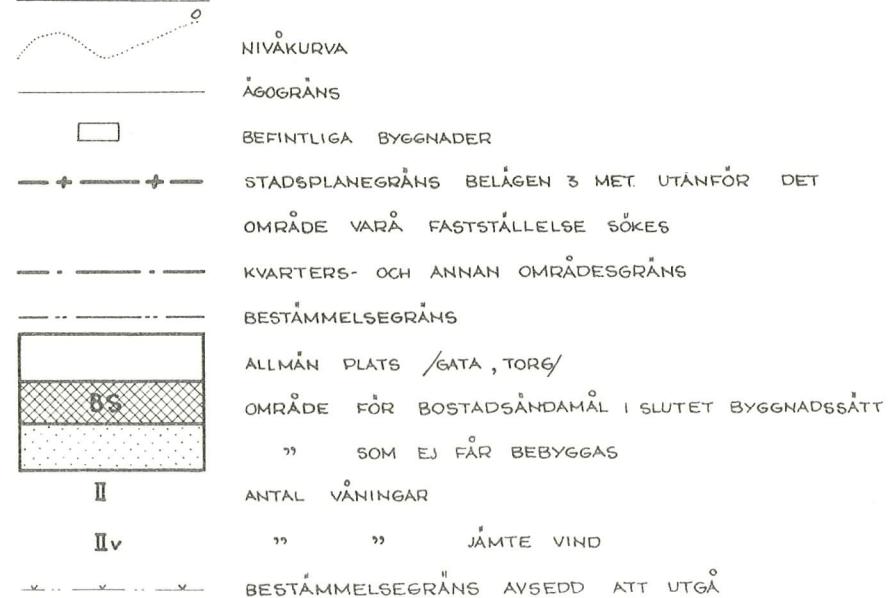 O
NIVÅKURVA
ÄGOGRÄNS
BEFINTLIGA BYGGNADER
STADSPLANEGRÄNS BELÄGEN 3 MET. UTANFÖR DET
OMRÅDE VARÅ FASTSTÄLLELSE SÖKES
KVARTERS- OCH ANNAN OMRÅDESGRÄNS
BESTÄMMELSEGRÄNS
ALLMÄN PLATS /GATA, TORG/
BS OMRÅDE FÖR BOSTADSÄNDAMÅL I SLUTET BYGGNADSSÄTT
" SOM EJ FÅR BEBYGGAS
II ANTAL VÅNINGAR
IIv " " JÄMTE VIND
BESTÄMMELSEGRÄNS AVSEDD ATT UTGÅ